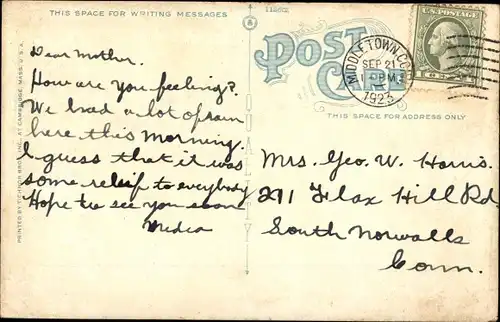 THIS SPACE FOR WRITING MESSAGES
POST
CARD
THIS SPACE FOR ADDRESS ONLY
MIDDLETOWN, CONN.
SEP 21
PM
1923
U.S. POSTAGE
Dear Mother.
How are you feeling?
We had a lot of rain
here this morning.
I guess that it was
some relief to everybody
Hope to see you soon
Mrs. Geo. W. Harris.
291 Flax Hill Rd
South Norwalk
Conn.
QUALITY
PRINTED BY TICHNOR BROS. INC., AT CAMBRIDGE, MASS. U.S.A.